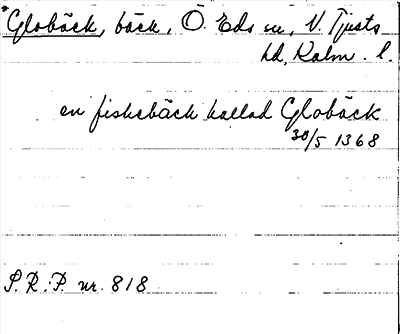 *Globäck, bäck, Ö. Eds sn, N. Tjusts
hd, Kalm. l.
en fiskebäck kallad Globäck
30/5 1368
S.R.P. nr. 818